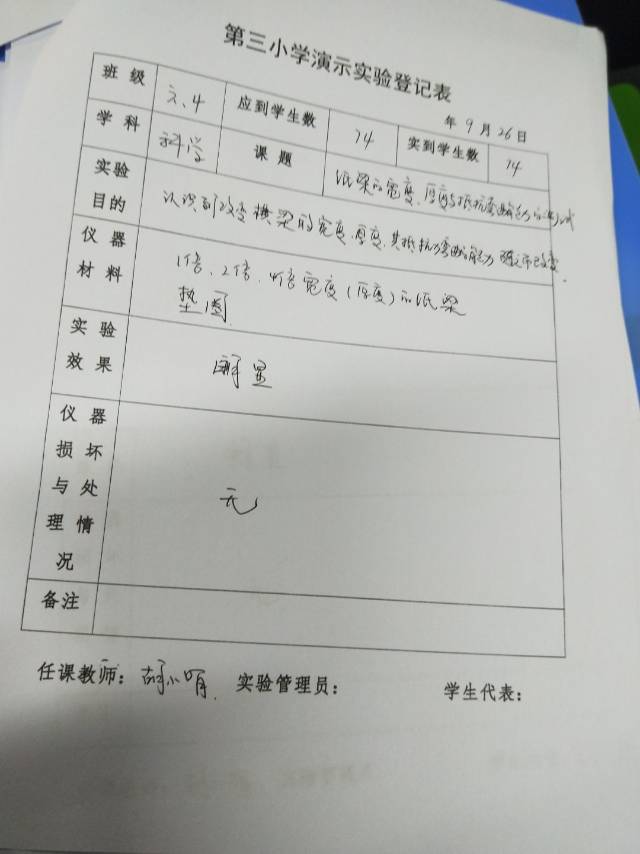 第三小学演示实验登记表
年 9 月 26 日
班 级 六、4 应到学生数 74 实到学生数 74
学 科 科学 课 题 纸梁的宽度、厚度与抵抗弯曲能力的
实验目的 认识到改变横梁的宽度、厚度,其抵抗弯曲能力随之而改变.
仪 器 材 料 1倍、2倍、4倍宽度(厚度)的纸梁
垫圈
实 验 效 果 明显
仪 器 损 坏 与 处 理 情 况 无
备注
任课教师: 胡小 实验管理员: 学生代表: